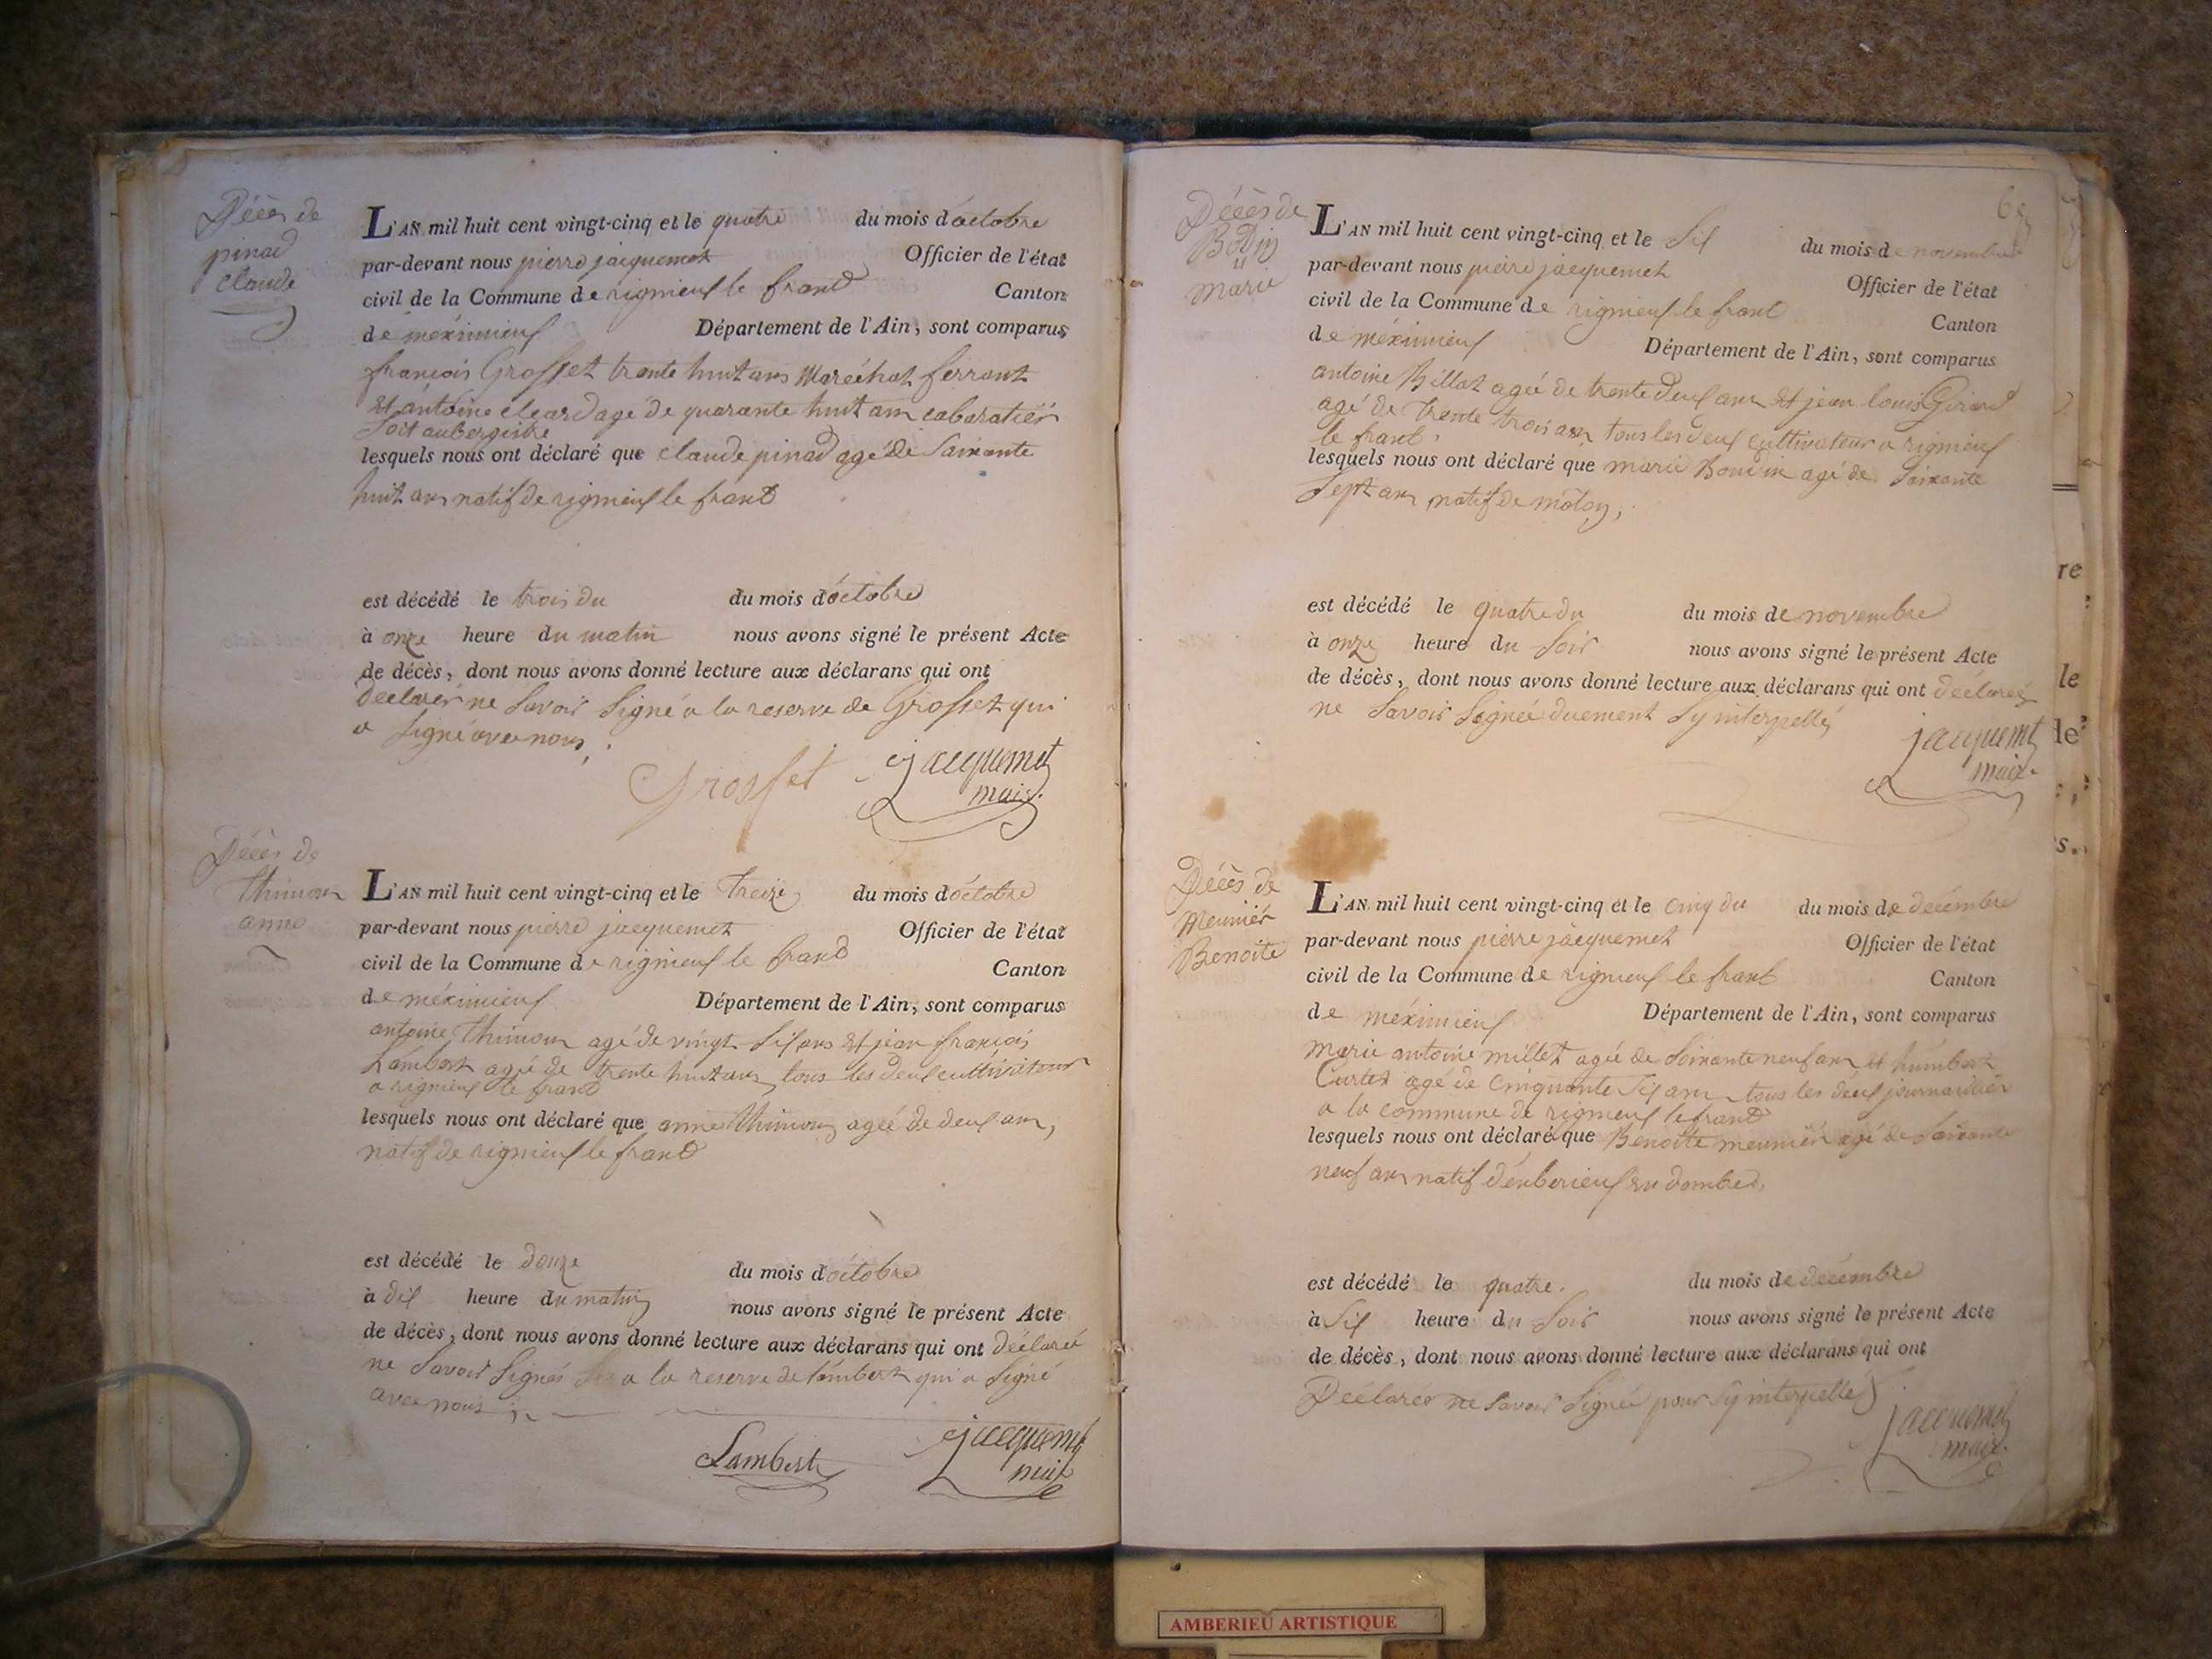 Décès de
pinad
claude
L'AN mil huit cent vingt-cinq et le quatre du mois d'octobre
par-devant nous pierre jacquemet Officier de l'état
civil de la Commune de rignieux le franc Canton
de méximieux Département de l'Ain, sont comparus
francois Grosset trente huit ans Maréchal ferrant
et antoine cleard agé de quarante huit ans cabaratiér
soit aubergiste
lesquels nous ont déclaré que claude pinad agé de Saixante
huit ans natif de rignieux le franc
est décédé le trois du du mois d'octobre
à onze heure du matin nous avons signé le présent Acte
de décès, dont nous avons donné lecture aux déclarans qui ont
declarér ne Savoir Signé a la reserve de Grosset qui
a Signé avec nous
Grosset jacquemet
maire
Décès de
thimon
anne
L'AN mil huit cent vingt-cinq et le Treize du mois d'octobre
par-devant nous pierre jacquemet Officier de l'état
civil de la Commune de rignieux le franc Canton
de méximieux Département de l'Ain, sont comparus
antoine thimon agé de vingt Six ans et jean francois
Lambert agé de trente huit ans tous les deux cultivateur
a rignieux le franc
lesquels nous ont déclaré que anne thimon agée de deux ans,
natif de rignieux le franc
est décédé le douze du mois d'octobre
à dix heure du matin nous avons signé le présent Acte
de décès, dont nous avons donné lecture aux déclarans qui ont déclaré
ne Savoir Signés a la reserve de lambert qui a Signé
avec nous
Lambert jacquemet
maire
Décès de
Bodin
marie
L'AN mil huit cent vingt-cinq et le Six du mois de novembre
par-devant nous pierre jacquemet Officier de l'état
civil de la Commune de rignieux le franc Canton
de méximieux Département de l'Ain, sont comparus
antoine Billat agé de trente deux ans et jean louis Girard
agé de trente trois ans tous les deux cultivateur a rignieux
le franc.
lesquels nous ont déclaré que marie agé de Saixante
Sept ans natif de
est décédé le quatre du du mois de novembre
à onze heure du Soir nous avons signé le présent Acte
de décès, dont nous avons donné lecture aux déclarans qui ont déclarés
ne Savoir Signée duement Sy interpellé
jacquemet
maire
Décès de
Meuniér
Benoite
L'AN mil huit cent vingt-cinq et le cinq du du mois de décémbre
par-devant nous pierre jacquemet Officier de l'état
civil de la Commune de rignieux le franc Canton
de méximieux Département de l'Ain, sont comparus
Marie antoine millet agée de Soixante neuf ans et humbert
Curtet agé de Cinquante Six ans tous les deux journaliér
a la commune de rignieux le franc
lesquels nous ont déclaré que Benoite meuniér agé de Saixante
neuf ans natif d'enberieux en dombes,
est décédé le quatre. du mois de décémbre
à Six heure du Soir nous avons signé le présent Acte
de décès, dont nous avons donné lecture aux déclarans qui ont
Déclarés ne Savoir Signée pour Sy interpellé
jacquemet
maire
re
le
de
s.
AMBERIEU ARTISTIQUE